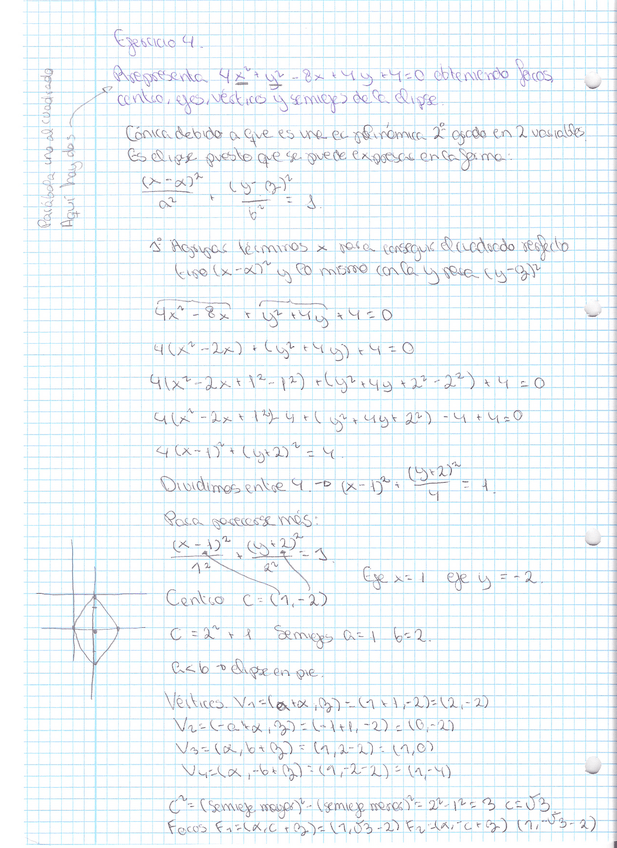 Ejercicio 4.
Representa 4x² + y² - 8x + 4y + 4 = 0 obteniendo focos,
centro, ejes, vértices y semiejes de la elipse.
Parábola uno al cuadrado
Aquí hay dos
Cónica debido a que es una ec polinómica 2º grado en 2 variables
Es elipse puesto que se puede expresar en la forma:
(x-α)²/a² + (y-β)²/b² = 1.
1º Agrupar términos x para conseguir el cuadrado perfecto
tipo (x-α)² y lo mismo con la y para (y-β)²
4x² - 8x + y² + 4y + 4 = 0
4(x² - 2x) + (y² + 4y) + 4 = 0
4(x² - 2x + 1² - 1²) + (y² + 4y + 2² - 2²) + 4 = 0
4(x² - 2x + 1²) - 4 + (y² + 4y + 2²) - 4 + 4 = 0
4(x-1)² + (y+2)² = 4.
Dividimos entre 4. → (x-1)² + (y+2)²/4 = 1.
Para parecerse más:
(x-1)²/1² + (y+2)²/2² = 1
Eje x=1 eje y = -2.
Centro C = (1, -2)
C = 2² + 1 Semiejes a=1 b=2.
a<b → elipse en pie.
Vértices V₁=(a+α, β) = (1+1, -2) = (2, -2)
V₂=(-a+α, β) = (-1+1, -2) = (0, -2)
V₃=(α, b+β) = (1, 2-2) = (1, 0)
V₄=(α, -b+β) = (1, -2-2) = (1, -4)
C² = (semieje mayor)² - (semieje menor)² = 2² - 1² = 3 c = √3
Focos F₁=(α, c+β) = (1, √3-2) F₂=(α, -c+β) (1, -√3-2)